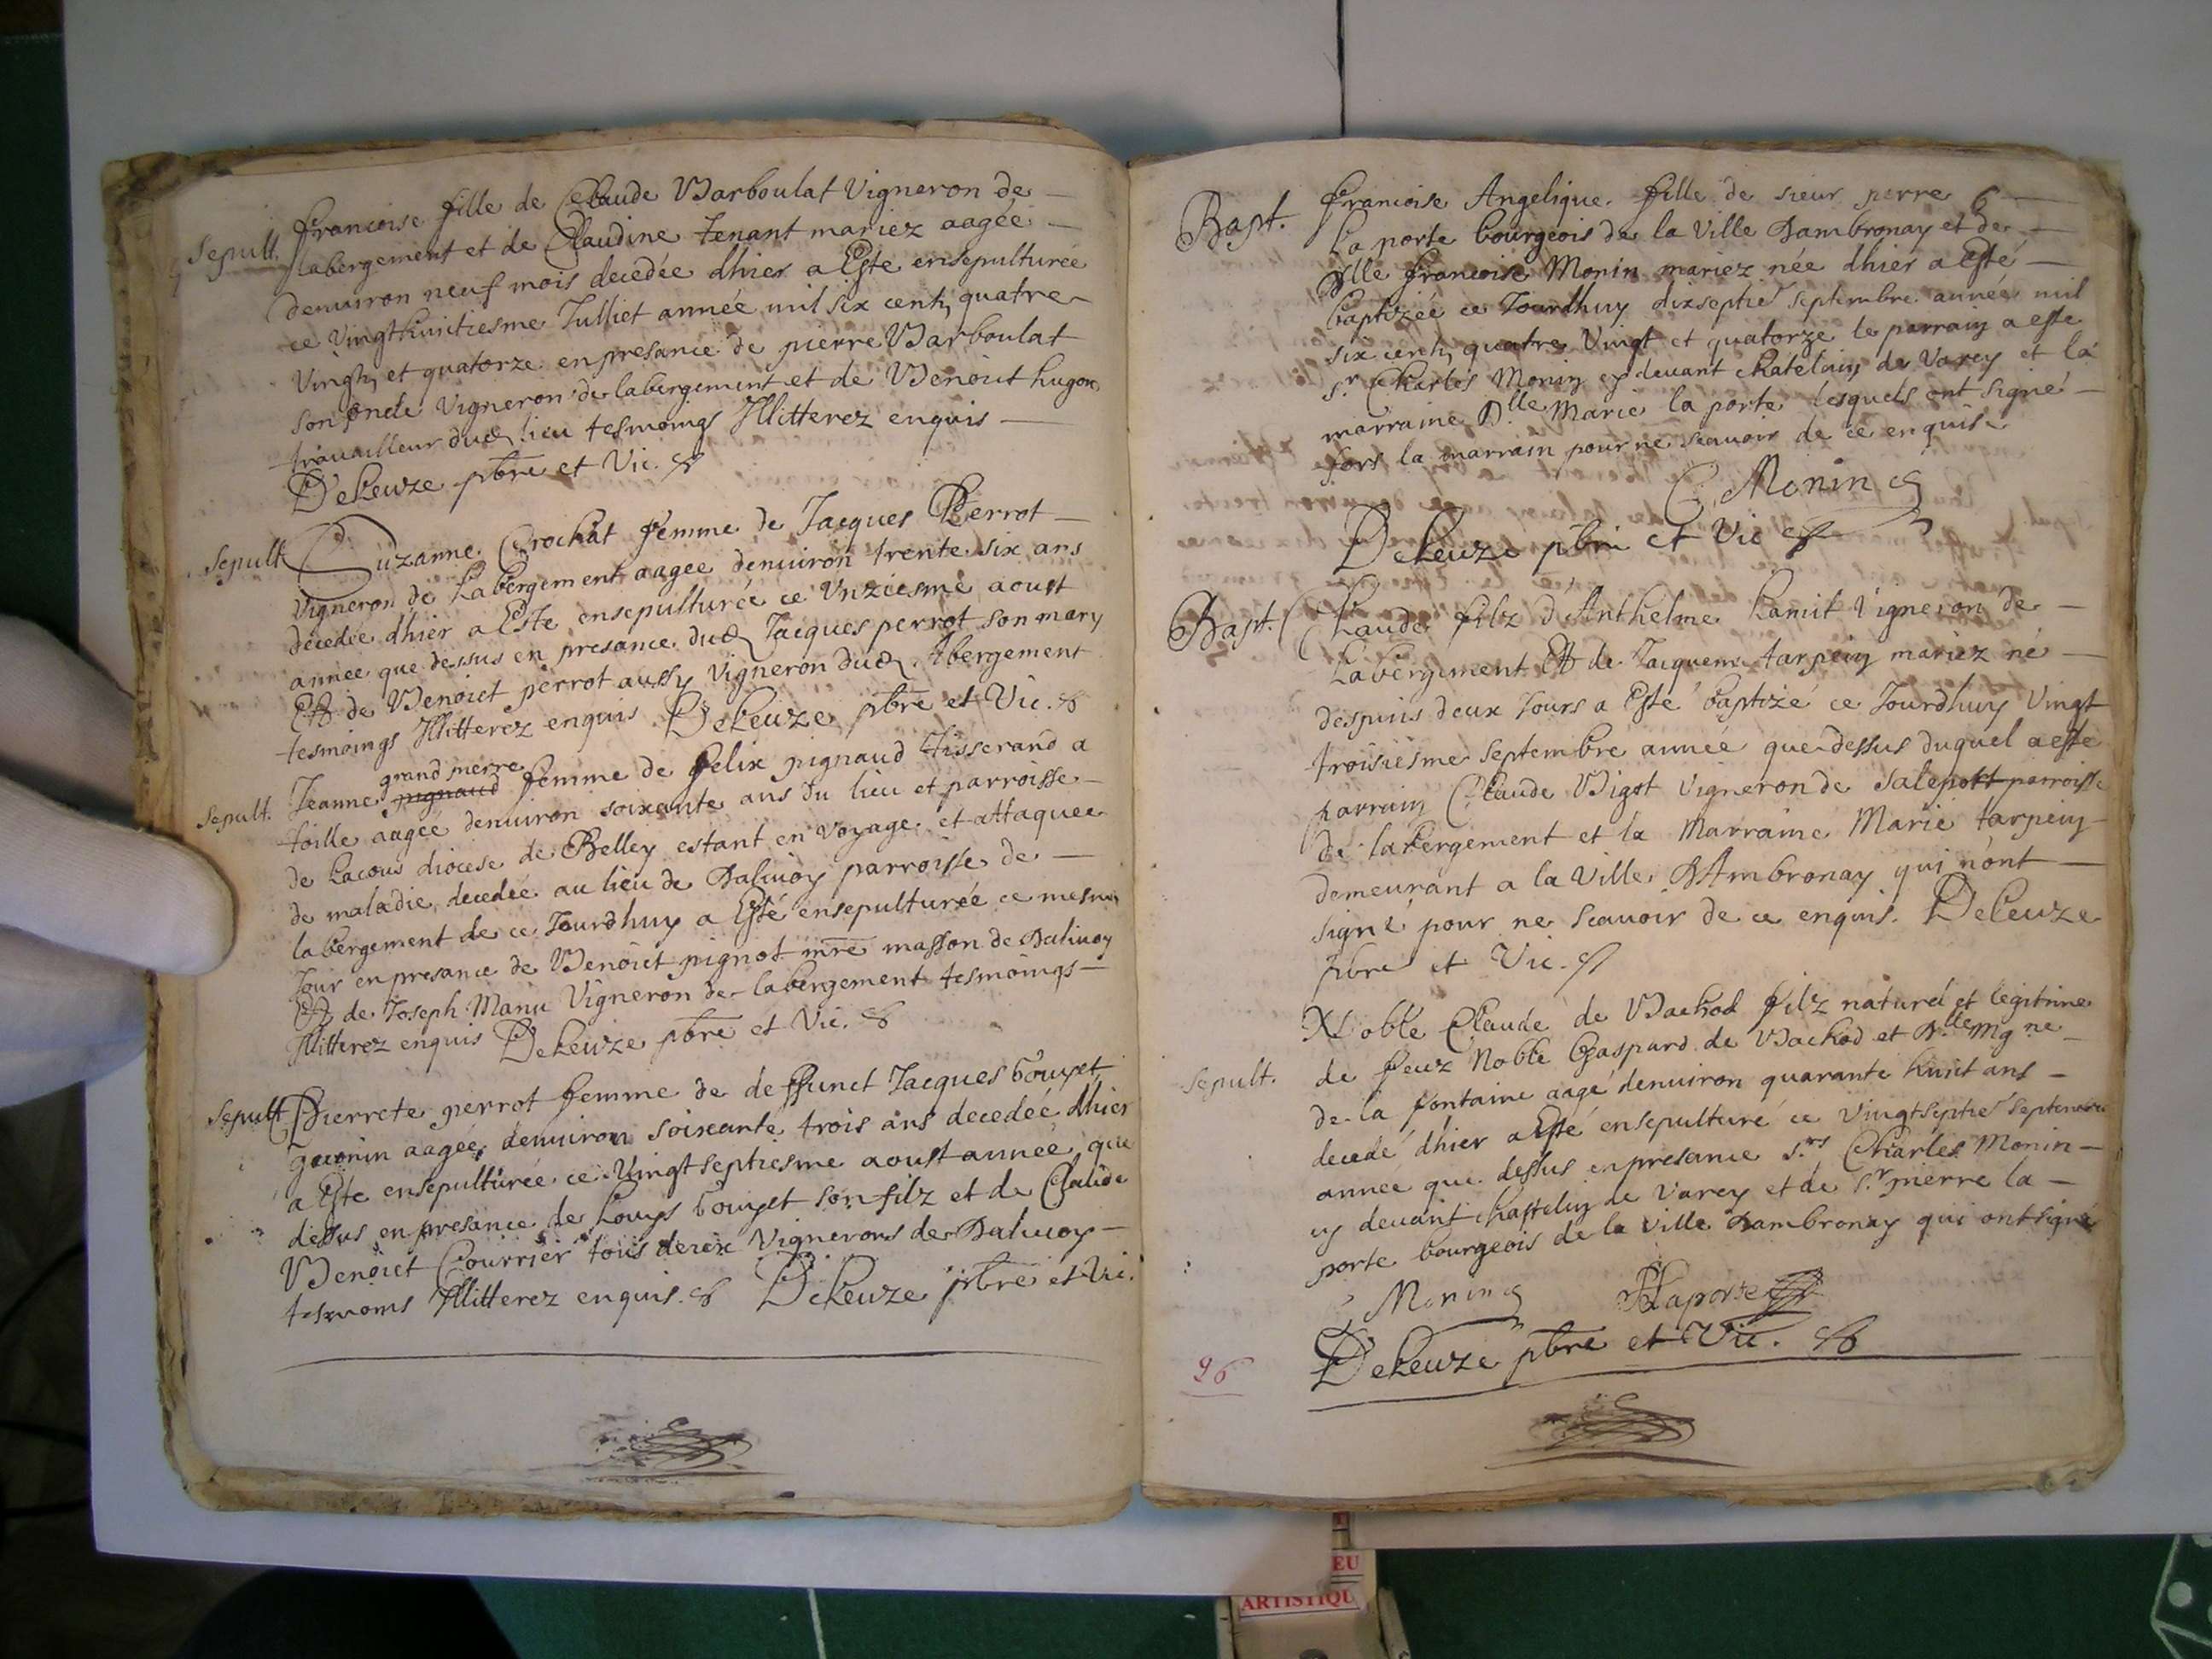 Sepult. francoise fille de Claude Barboulat Vigneron de
labergement et de Claudine tenant mariez aagée
denuiron neuf mois decedée dhier a Esté ensepulturée
ce Vingthuictiesme Julliet année mil six cents quatre
Vingts et quatorze en presance de pierre Barboulat
son oncle Vigneron de labergement et de Benoict hugon
travailleur dud. lieu tesmoings Illitterez enquis
Deleuze pbre et Vic.
Sepult. Suzanne Crochat femme de Jacques Perrot
Vigneron de Labergement aagee denuiron trente six ans
décedée dhier a Este ensepulturée ce Unziesme aoust
annee que dessus en presance dud. Jacques perrot son mary
Et de Benoict perrot aussy Vigneron dud. Abergement
tesmoings Illitterez enquis Deleuze pbre et Vic.
grand pierre
Sepult. Jeanne pignaud femme de felix pignaud tisserand a
toille aagée denuiron soixante ans du lieu et parroisse
de Lacous diocese de Belley estant en Voyage et attaquee
de maladie decedée au lieu de Dalivoy parroisse de
labergement de ce Jourdhuy a Esté ensepulturée ce mesme
Jour en presance de Benoict pignot mre masson de Dalivoy
Et de Joseph Manu Vigneron de labergement tesmoings
Illitterez enquis Deleuze pbre et Vic.
Sepult. Pierrete perrot femme de deffunct Jacques bouyet
guonin aagée denuiron soixante trois ans decedée dhier
a Este ensepulturée ce Vingtseptiesme aoust année que
dessus en presance de Louys bouyet son filz et de Claude
Benoict Courrier tous deux Vignerons de Dalivoy
tesmoins Illitterez enquis. Deleuze pbre et Vic.
6
Bapt. francoise Angelique fille de sieur pierre
La porte bourgeois de la Ville Dambronay et de
Dlle francoise Monin mariez née dhier a esté
baptizée ce Jourdhuy dixseptie septembre année mil
six cents quatre Vingt et quatorze le parrain a este
sr Charles Monin cy deuant châtelain de Varey et la
marraine Dlle Marie la porte lesquels ont signé
fors la marrain pour ne scauoir de ce enquise
C Monin
Deleuze pbre et Vic
Bapt. Claude filz d'Anthelme Lamit Vigneron de
Labergement Et de Jacqueme tarpein mariez né
despuis deux Jours a Esté baptizé ce Jourdhuy Vingt
troisiesme septembre année que dessus duquel a este
parrain Claude Bigot Vigneron de Salepott parroisse
de labergement et la Marraine Marie tarpein
demeurant a la Ville D'Ambronay qui n'ont
signé pour ne Scauoir de ce enquis. Deleuze
pbre et Vic.
Noble Claude de Bachod filz naturel et legitime
Sepult. de feuz Noble Gaspard de Bachod et Dlle Mgne
de la fontaine aagé denuiron quarante huict ans
decedé dhier a Esté ensepulturé ce Vingtseptie septembre
année que dessus en presance srs Charles Monin
cy deuant chastelain de Varey et de sr pierre la
porte bourgeois de la Ville Dambronay qui ont signé
C Monin PLaporte
Deleuze pbre et Vic.
96
EU
ARTISTIQU